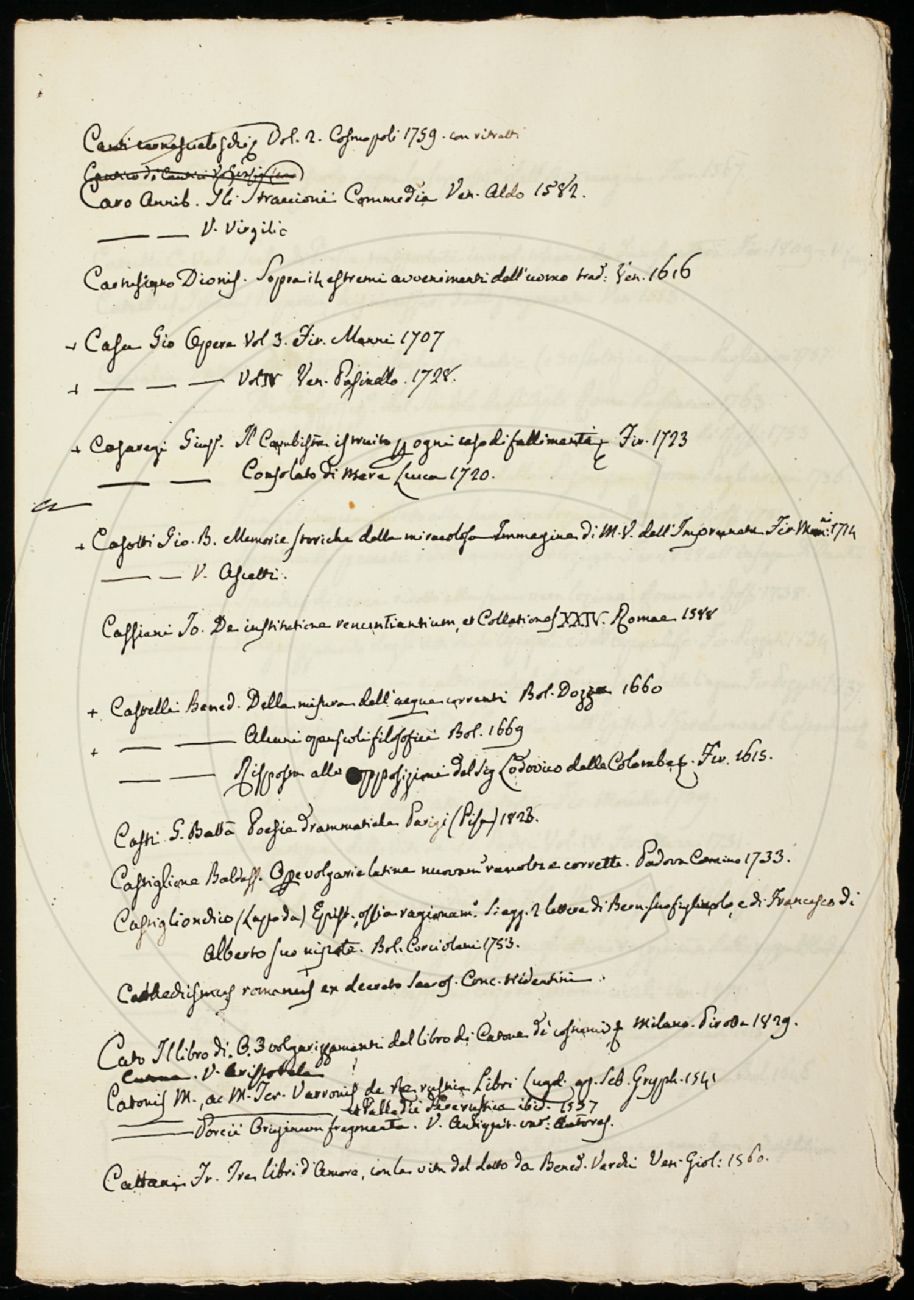 Canti carnascialeschi Vol. 2. Cosmopoli 1759. con ritratti
Caro Annib. Gli Straccioni Commedia Ven. Aldo 1582.
— — V. Virgilio
Cartusiano Dionis. Sopra i 4 estremi avvenimenti dell'uomo trad. Ven. 1616
+ Casa Gio Opere Vol 3. Fir. Manni 1707
+ — — — Vol IV Ven. Pasinello. 1728.
+ Casaregi Gius. Il Cambista istruito p ogni caso di fallimenti Fir. 1723
— — Consolato di mare Lucca 1720.
+ Casotti Gio. B. Memorie storiche della miracolosa Immagine di M. V. dell'Impruneta Fir. Man: 1714
— — V. Ascetti.
Cassiani Jo. De institutione renuntiantium, et Collationes XXIV. Romae 1588
+ Castelli Bened. Della misura dell'acque correnti Bol. Dozza 1660
+ — — Alcuni opuscoli filosofici Bol. 1669
— — Risposta alle opposizioni del Sig Lodovico delle Colombe Fir. 1615.
Casti G. Batta Poesie drammatiche Parigi (Pisa) 1823.
Castiglione Baldass. Opere volgari e latine nuovam. raccolte e corrette. Padova Comino 1733.
Castiglionchio (Lapo da) Epist. ossia ragionam. Si agg. 2 lettere di Bern. suo figliuolo, e di Francesco di
Alberto suo nipote. Bol. Corciolani 1753.
Cathechismus romanus ex decreto Sacros. Conc. tridentini.
Cato Il libro di C. 3 volgarizzamenti del libro di Catone de' costumi Milano. Pirotta 1829.
V. Aristotele
Catonis M., ac M. Ter. Varronis de Re rustica Libri Lugd. ap. Seb. Gryph. 1541
et Palladii de re rustica ibid. 1537
— Porcii Originum fragmenta. V. Antiquit. var: Autores.
Cattani Fr. Tre libri d'Amore, con la vita del detto da Bened. Varchi Ven. Giol: 1560.